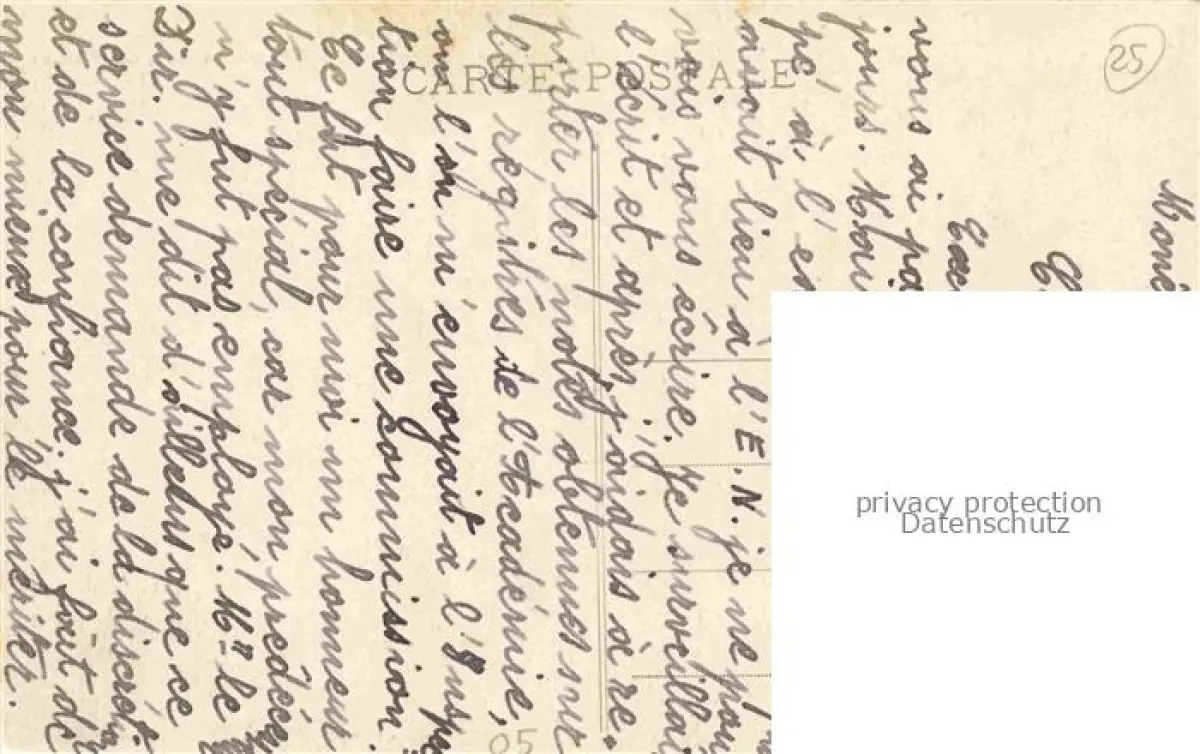 25
CARTE POSTALE
Moné
C
Exc
vous ai pa
jours. Mon
pé à l'e
aurait lieu à l'E.N. je ne pou
vais vous écrire. Je surveilla
l'écrit et après, j'aidais à re-
porter les notes obtenues sur
les régistres de l'Académie,
on l'on m'envoyait à l'Inspec
tion faire une commission.
Ce fut pour moi un honneur
tout spécial, car mon prédéce
n'y fut pas employé. Mr le
Dir. me dit d'ailleurs que ce
service demande de la discré
et de la confiance. j'ai fait de
mon mieux pour le mériter.
05
privacy protection
Datenschutz